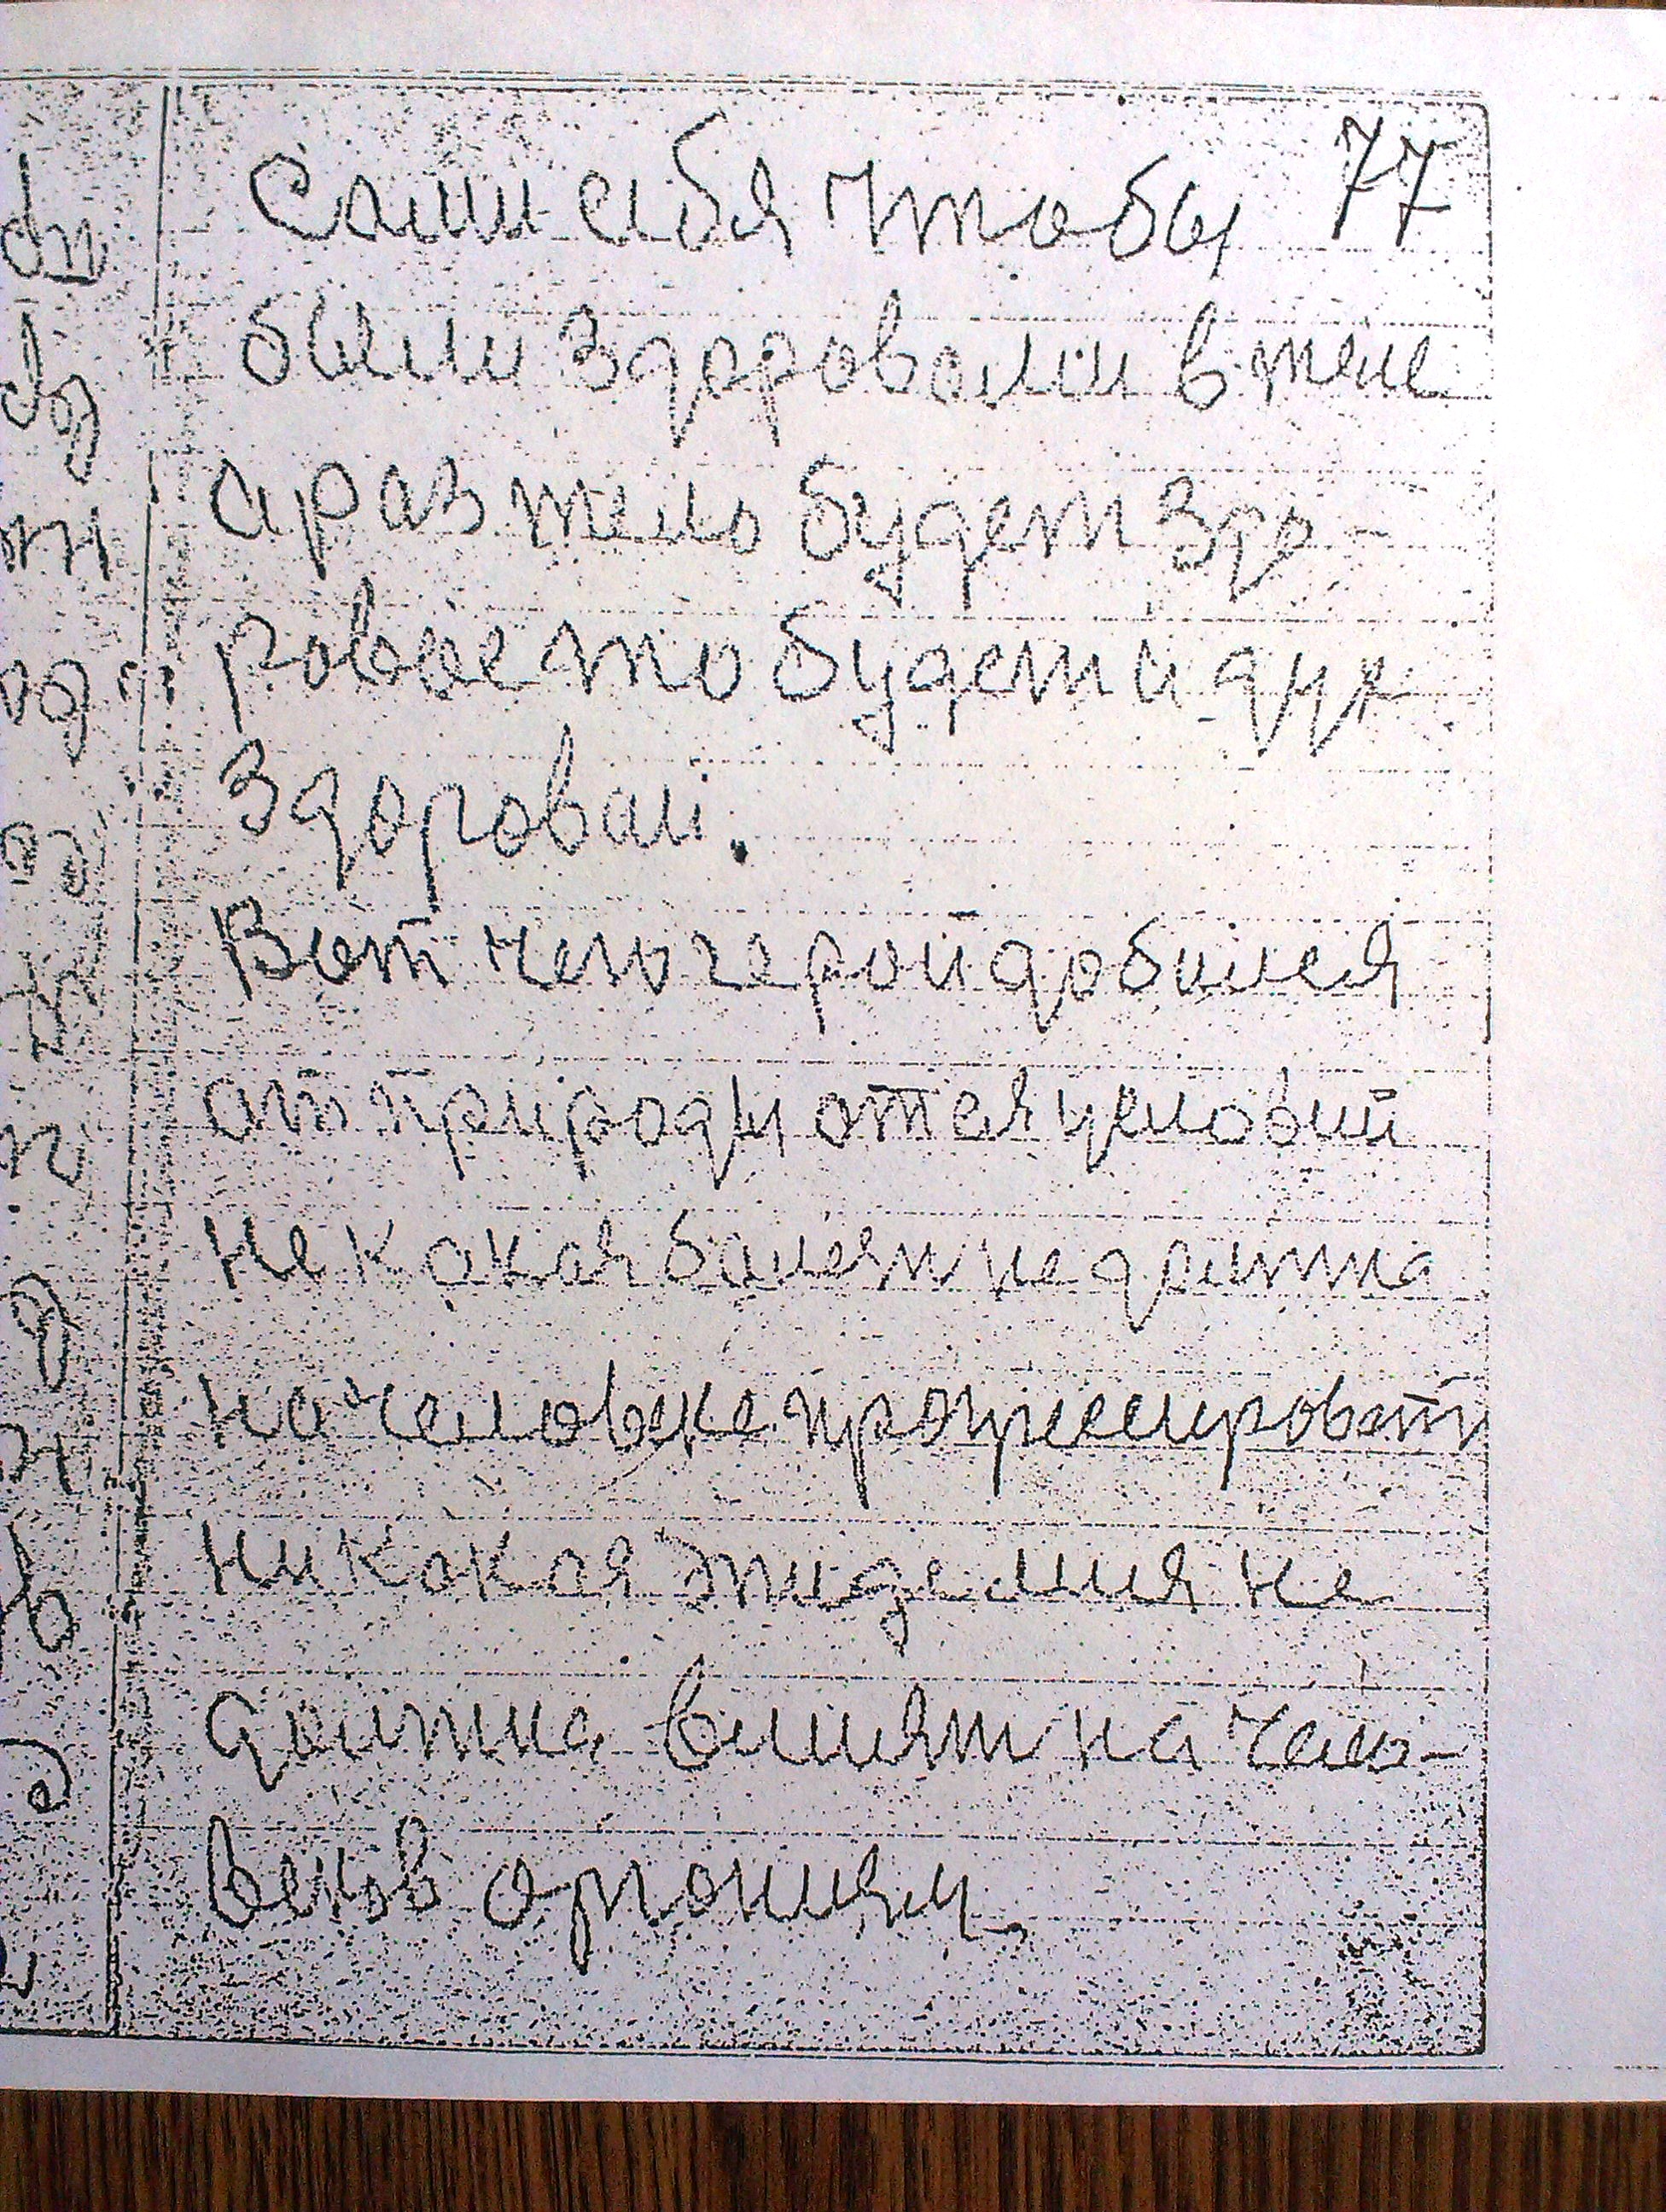 77
Сами себя чтобы
были здоровыми в теле
а раз тело будет здо-
ровое то будет и дух
здоровай.
Вот чего герой добился
от природы от ея условий
не какая балезн не далжна
на человеке прогрессироват
никокая эпидемия не
должна влият на чело-
веков